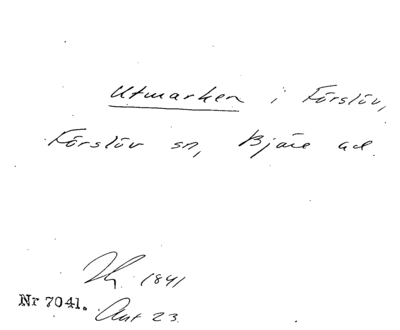 Utmarken i Förslöv,
Förslöv sn, Bjäre hd.
1841
Nr 7041.
Akt 23